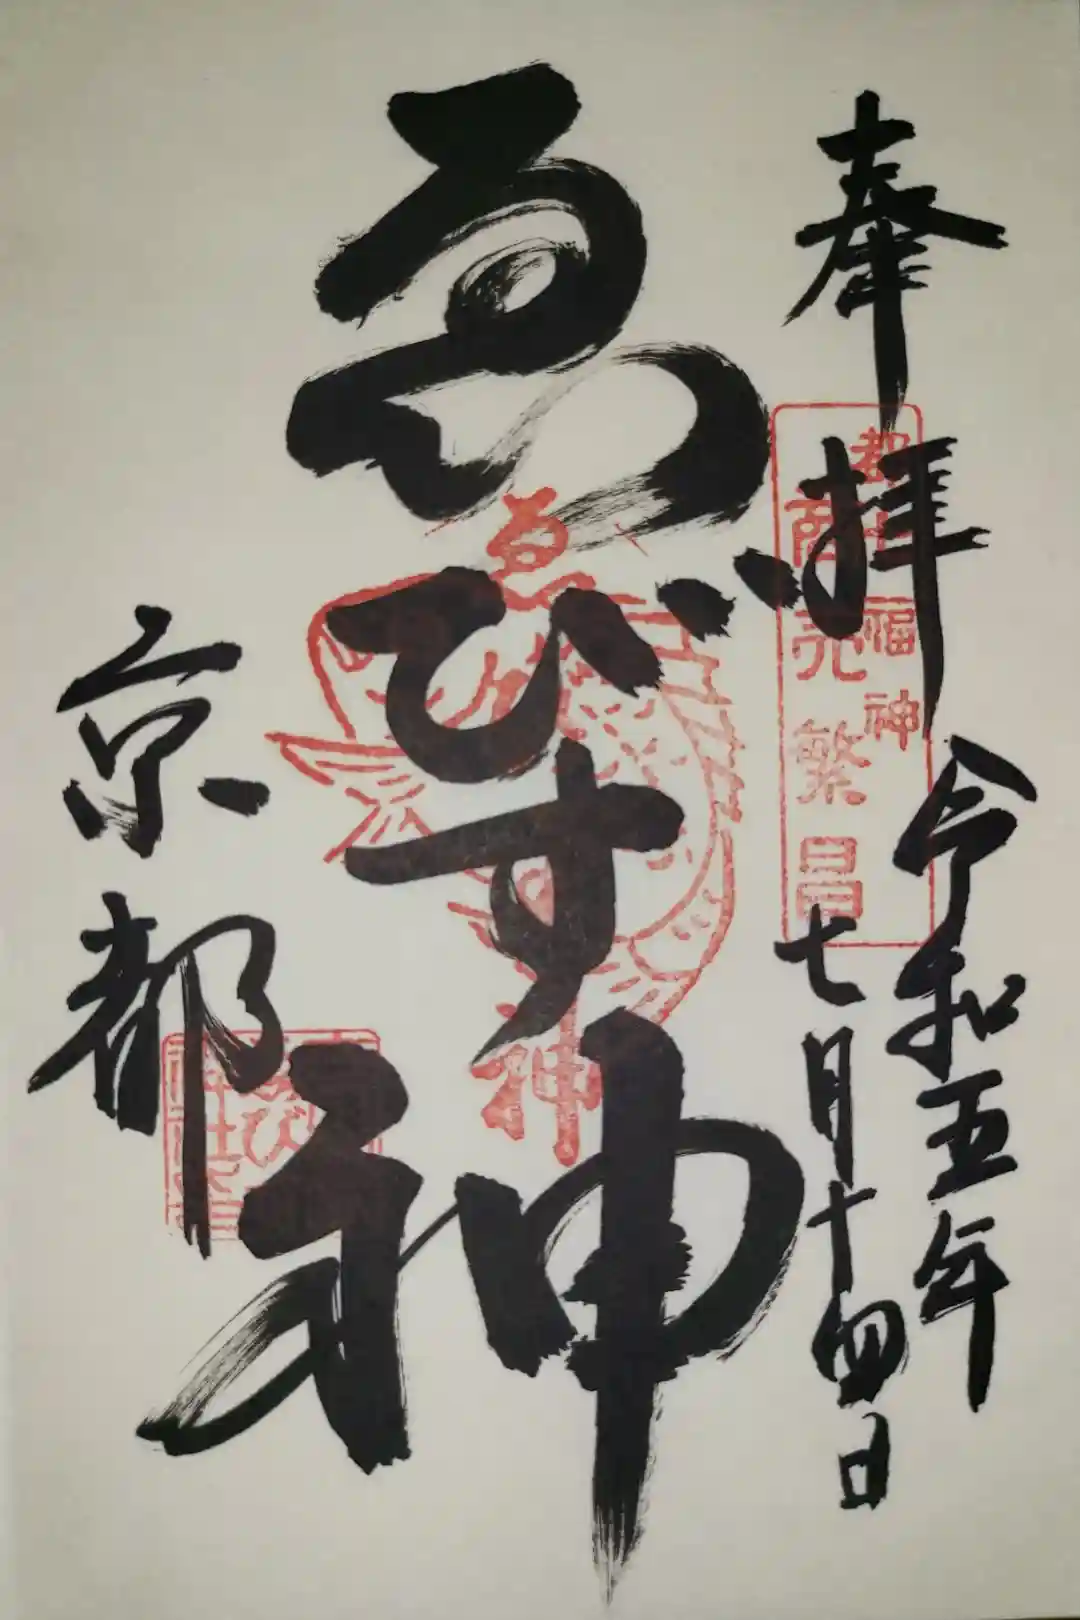 奉拝
令和五年
七月十四日
都七福神
商売繁昌
ゑびす神
ゑびす神
京都